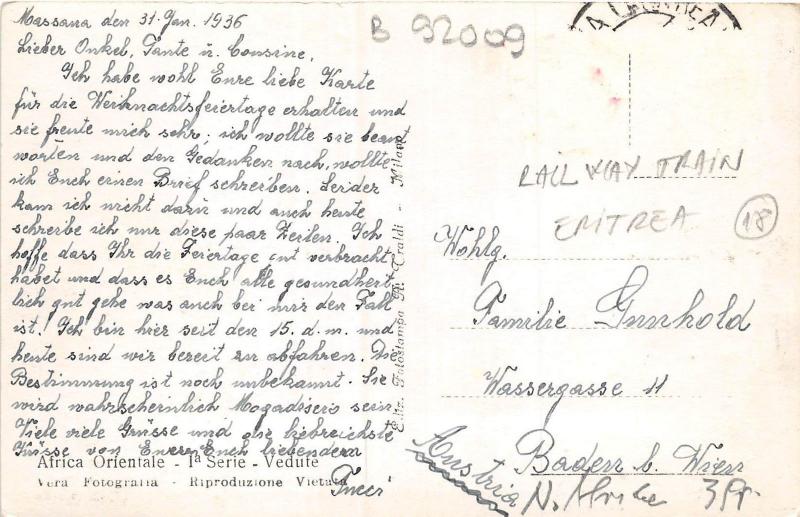 Massaua den 31. Jan. 1936
Lieber Onkel, Tante u. Cousine,
Ich habe wohl Eure liebe Karte
für die Weihnachtsfeiertage erhalten und
sie freute mich sehr, ich wollte sie beant
worten und den Gedanken nach, wollte
ich Euch einen Brief schreiben. Leider
kam ich nicht darir und auch heute
schreibe ich nur diese paar Zeilen. Ich
hoffe dass Ihr die Feiertage gut verbracht
habet und dass es Euch alle gesundheit
lich gut gehe was auch bei mir der Fall
ist. Ich bin hier seit den 15. d. m. und
heute sind wir bereit zu abfahren. Die
Bestimmung ist noch unbekannt. Sie
wird wahrscheinlich Mogadiscio sein.
Viele viele Grüsse und die liebreichste
Küsse von Euren Euch liebenden
Africa Orientale - Iª Serie - Vedute
Vera Fotografia - Riproduzione Vietata
Ediz. Fotostampa A. Traldi - Milano
B 92009
RAILWAY TRAIN
ERITREA
18
Wohlg.
Familie Gunhold
Wassergasse 11
Baden b. Wien
Austria
N. Afrika